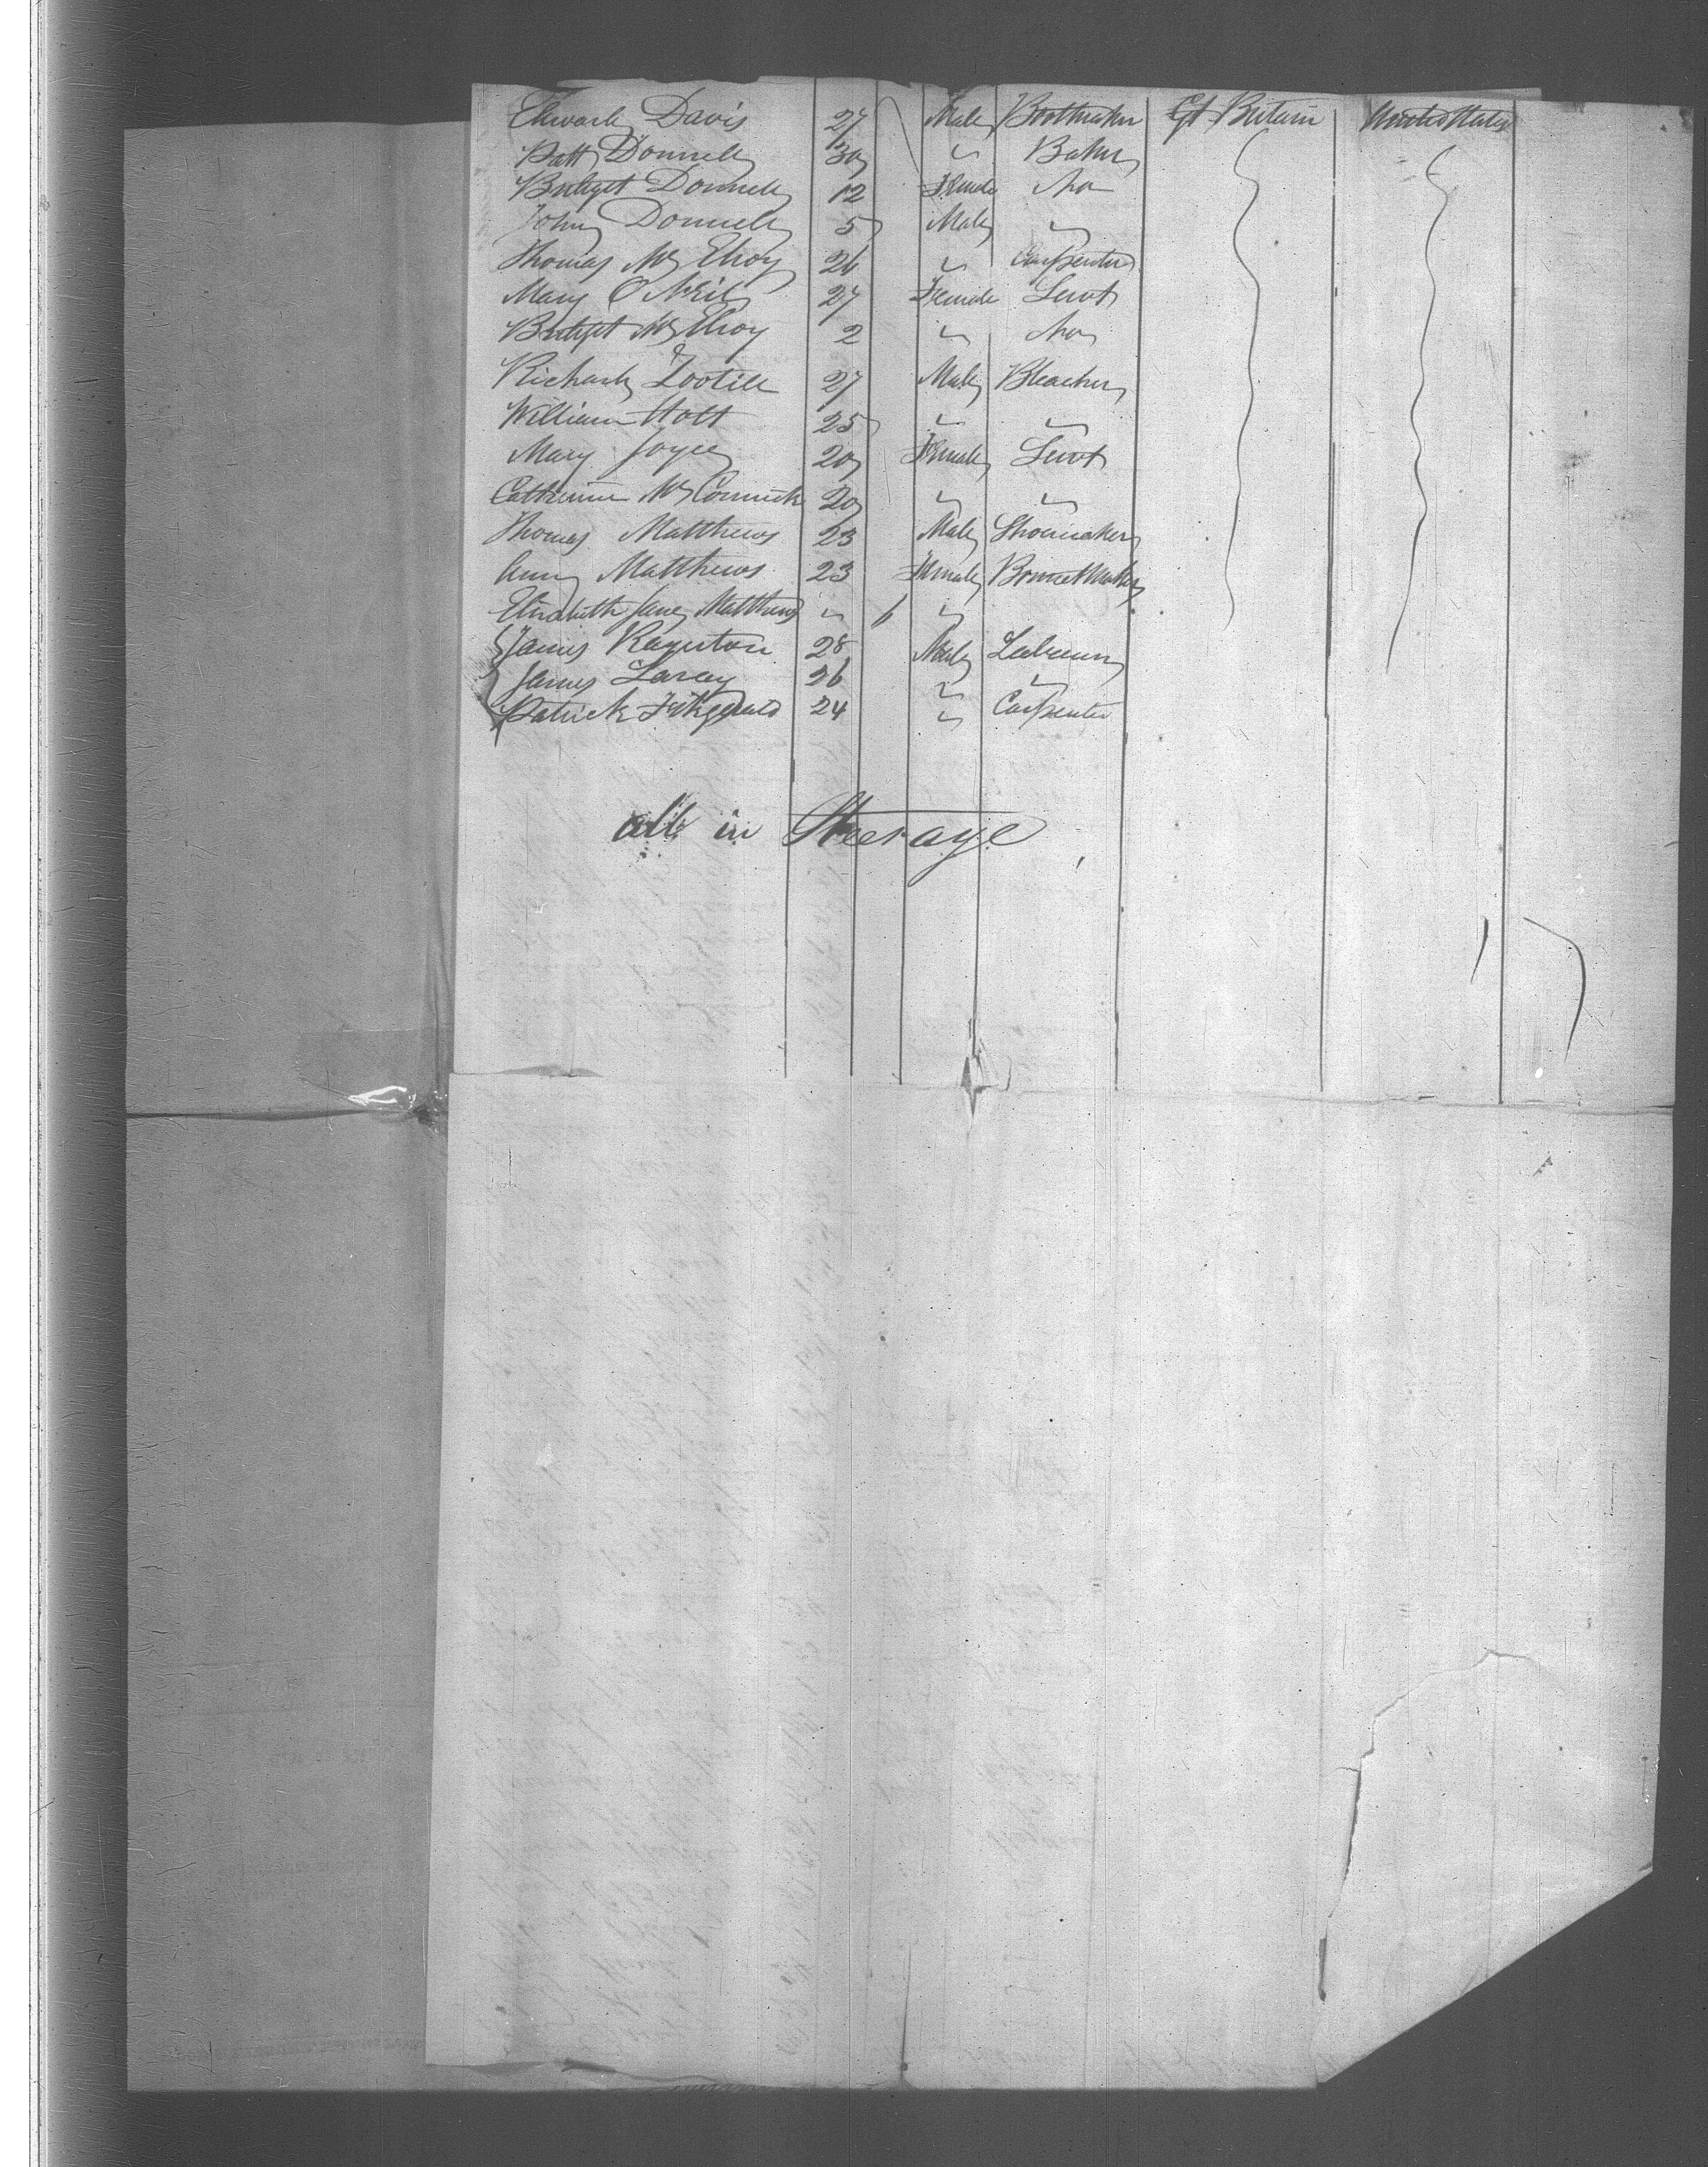 Edward Davis 27 Male Bootmaker Gt Britain United States
Patt Donnell 30 " Baker
Bridget Donnell 12 Female
John Donnell 5 Male "
Thomas Mc Elroy 26 " Carpenter
Mary O Neil 27 Female Servt
Bridget Mc Elroy 2 "
Richard Tootill 27 Male Bleacher
William Holt 25 " "
Mary Joyce 20 Female Servt
Catherine Mc Cormick 20 " "
Thomas Matthews 23 Male Shoemaker
Ann Matthews 23 Female Bonnet Maker
Elizabeth Jane Matthews " 6 "
James 28 Male Labourer
James Laracy 26 " "
Patrick Fitzgerald 24 " Carpenter
all in Steerage